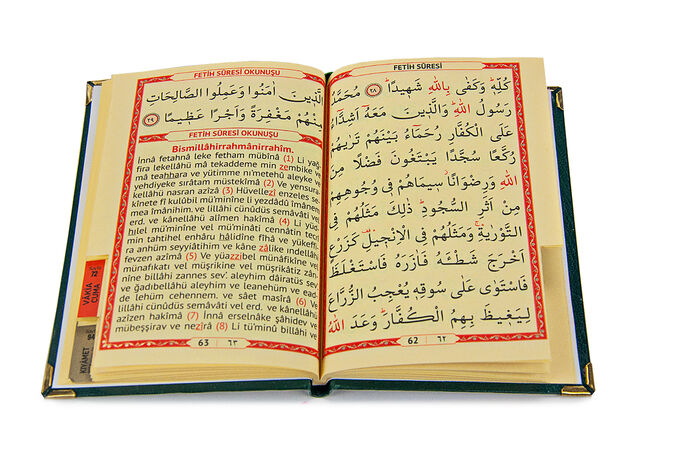 FETİH SÛRESİ
كُلِّهٖ وَكَفٰى بِاللّٰهِ شَهٖيدًا ﴿٢٨﴾ مُحَمَّدٌ
رَسُولُ اللّٰهِ وَالَّذٖينَ مَعَهُٓ اَشِدَّٓاءُ
عَلَى الْكُفَّارِ رُحَمَٓاءُ بَيْنَهُمْ تَرٰيهُمْ
رُكَّعًا سُجَّدًا يَبْتَغُونَ فَضْلًا مِنَ
اللّٰهِ وَرِضْوَانًا سٖيمَاهُمْ فٖي وُجُوهِهِمْ
مِنْ اَثَرِ السُّجُودِ ذٰلِكَ مَثَلُهُمْ فِي
التَّوْرٰيةِ وَمَثَلُهُمْ فِي الْاِنْجٖيلِ كَزَرْعٍ
اَخْرَجَ شَطْـَٔهُ فَاٰزَرَهُ فَاسْتَغْلَظَ
فَاسْتَوٰى عَلٰى سُوقِهٖ يُعْجِبُ الزُّرَّاعَ
لِيَغٖيظَ بِهِمُ الْكُفَّارَ وَعَدَ اللّٰهُ
62 ٦٢
FETİH SÛRESİ OKUNUŞU
الَّذٖينَ اٰمَنُوا وَعَمِلُوا الصَّالِحَاتِ
مِنْهُمْ مَغْفِرَةً وَاَجْرًا عَظٖيمًا ﴿٢٩﴾
FETİH SÛRESİ OKUNUŞU
Bismillâhirrahmânirrahîm.
İnnâ fetahnâ leke fetham mübînâ (1) Li yağ-
fira lekellâhü mâ tekaddeme min zembike ve
mâ teahhara ve yütimme ni'metehû aleyke ve
yehdiyeke sırâtam müstekîmâ (2) Ve yensura-
kellâhü nasran azîzâ (3) Hüvellezî enzeles se-
kînete fî kulûbil mü'minîne li yezdâdû îmânem
mea îmânihim. ve lillâhi cünûdüs semâvâti vel
erd. ve kânellâhü alîmen hakîmâ (4) Li yüd-
hılel mü'minîne vel mü'minâti cennâtin tecrî
min tahtihel enhâru hâlidîne fîhâ ve yükeffi-
ra anhüm seyyiâtihim ve kâne zâlike ındellâhi
fevzen azîmâ (5) Ve yüazzibel münâfikîne vel
münafikati vel müşrikîne vel müşrikâtiz zân-
nîne billâhi zannes sev'. aleyhim dâiratüs sev'
ve ğadıbellâhü aleyhim ve leanehüm ve ead-
de lehüm cehennem. ve sâet masîrâ (6) Ve
lillâhi cünûdüs semâvâti vel erd. ve kânellâhü
azîzen hakîmâ (7) İnnâ erselnâke şâhidev ve
mübeşşirav ve nezîrâ (8) Li tü'minû billâhi ve
63 ٦٣
72
VÂKIA
CUMA
94
KIYÂMET